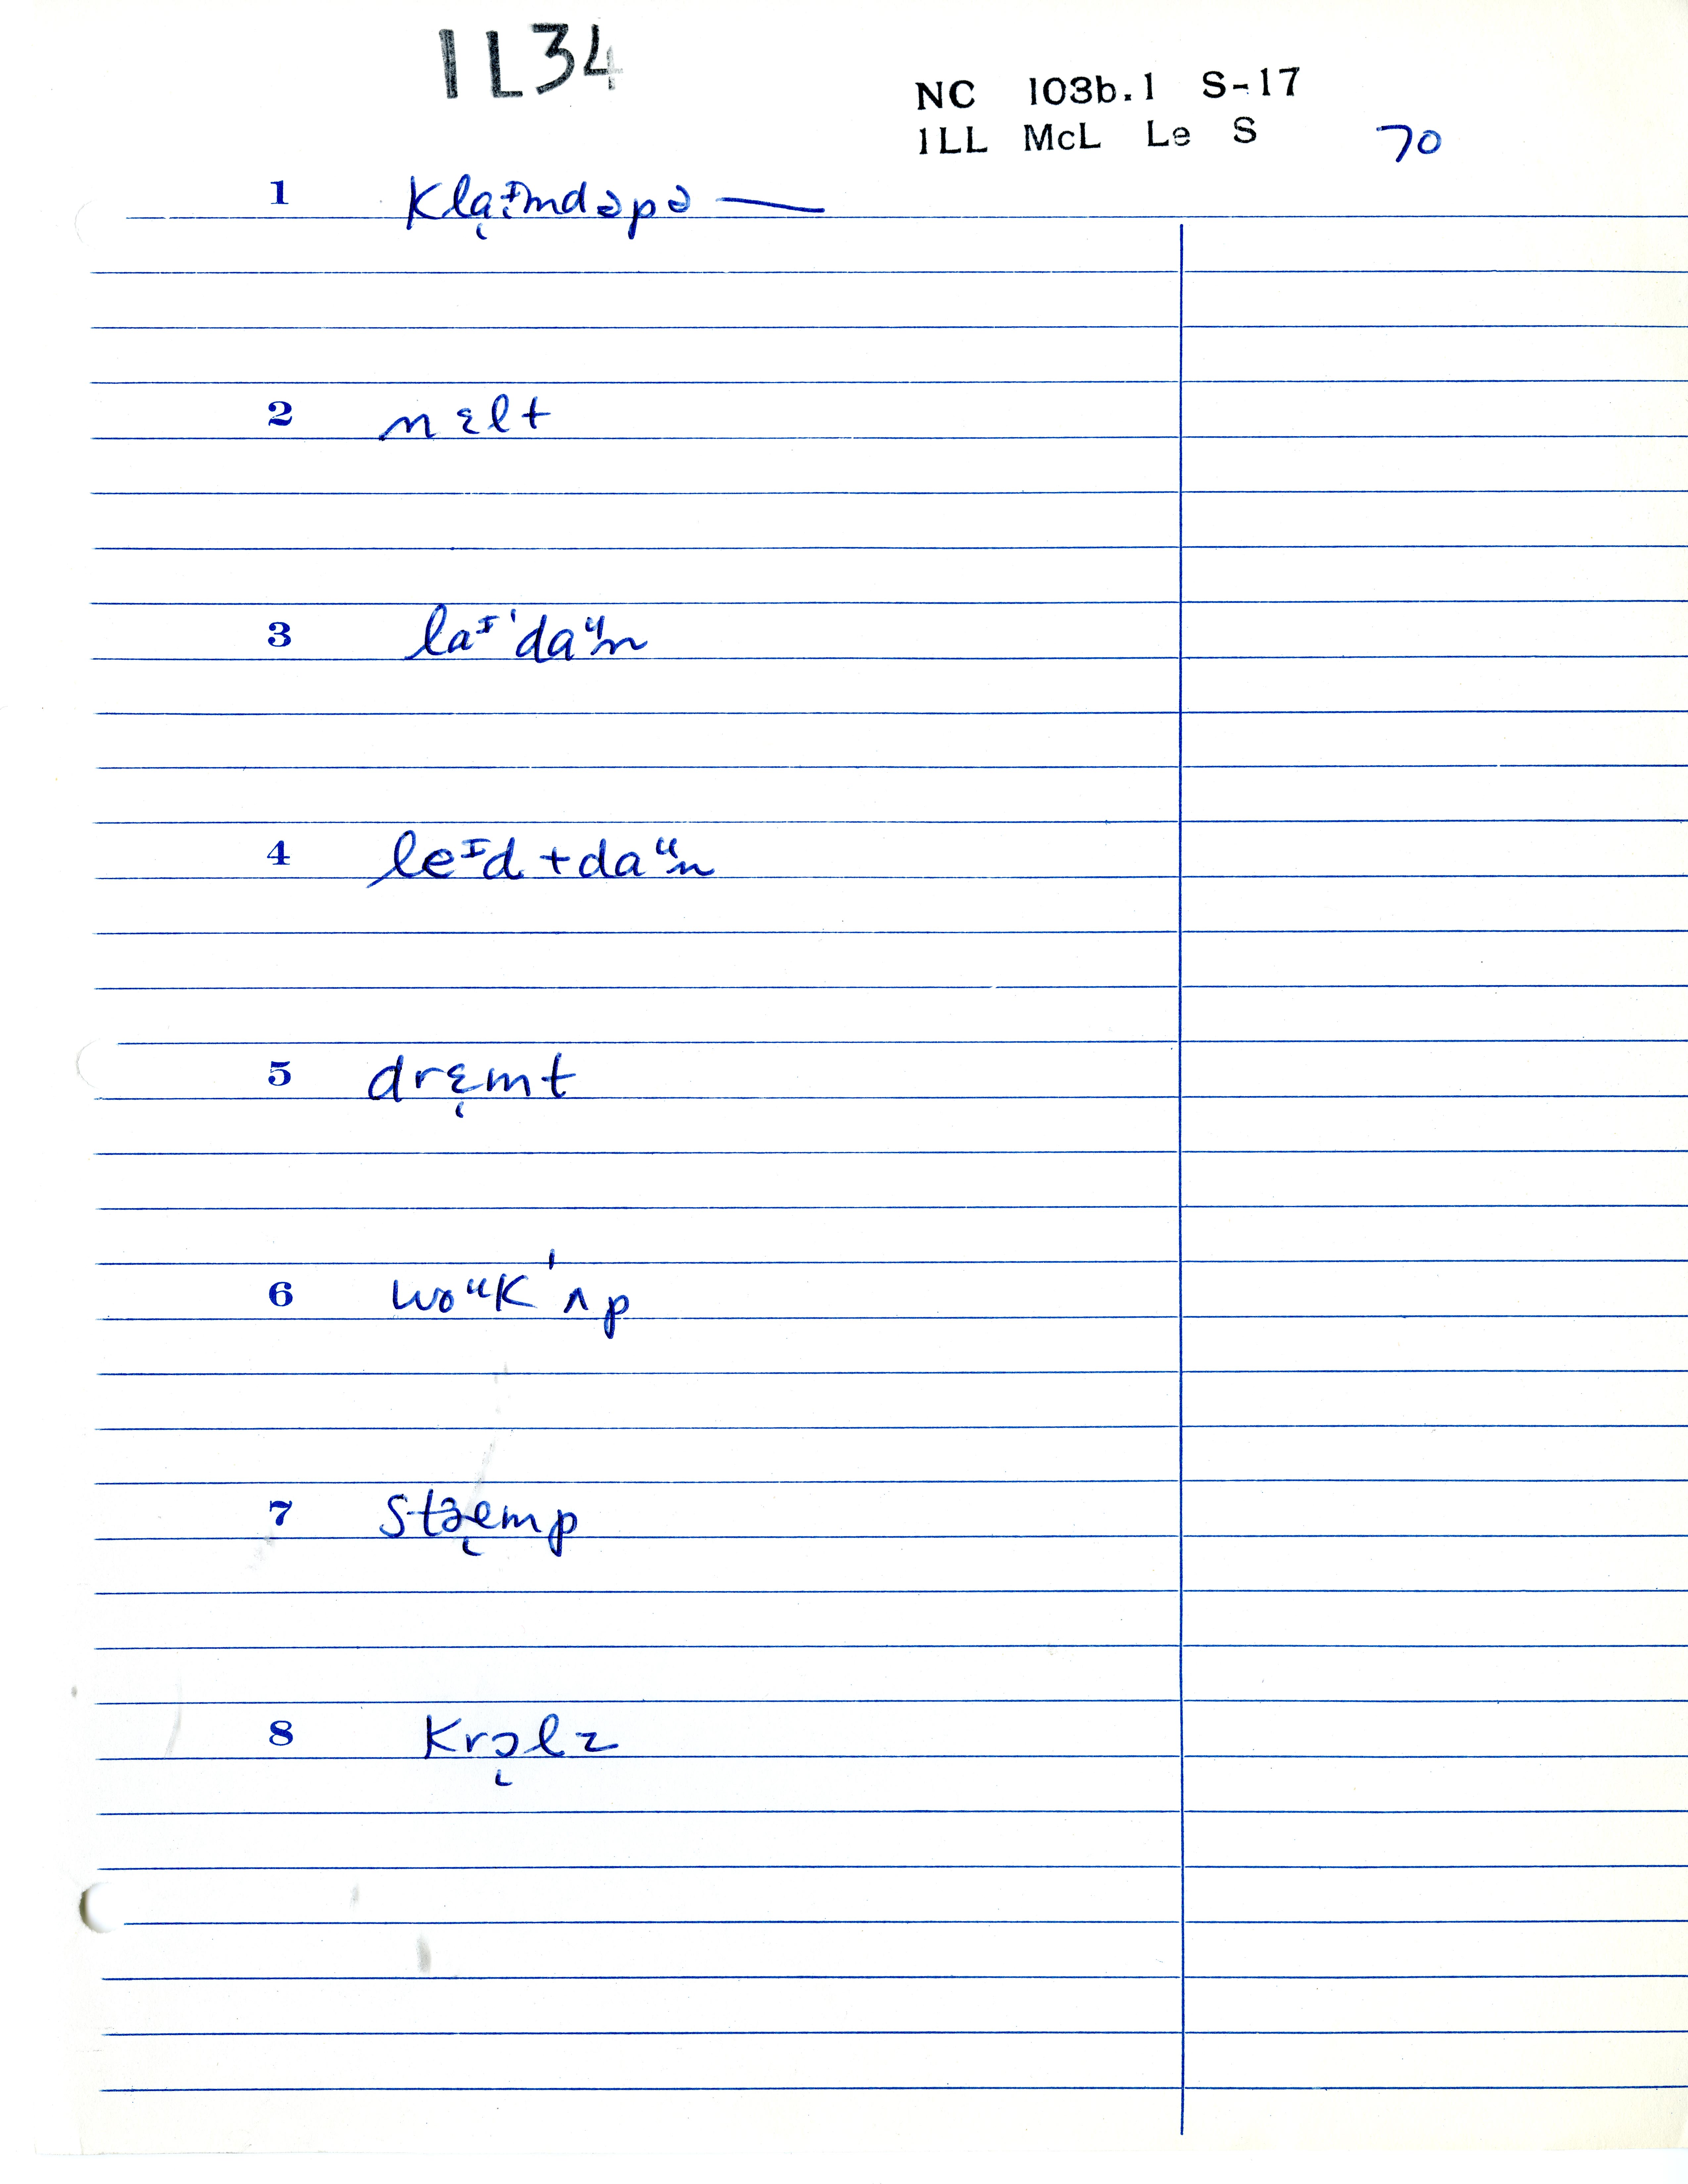 IL34
NC 103b.1 S-17
ILL McL Le S 70
1 kla̜ᵻmdəpə —
2 nɛlt
3 laᶦˈdaᵘn
4 leᶦd+daᵘn
5 drɛ̜mt
6 woᵘkˈʌp
7 stæ̜mp
8 krɔ̜lz